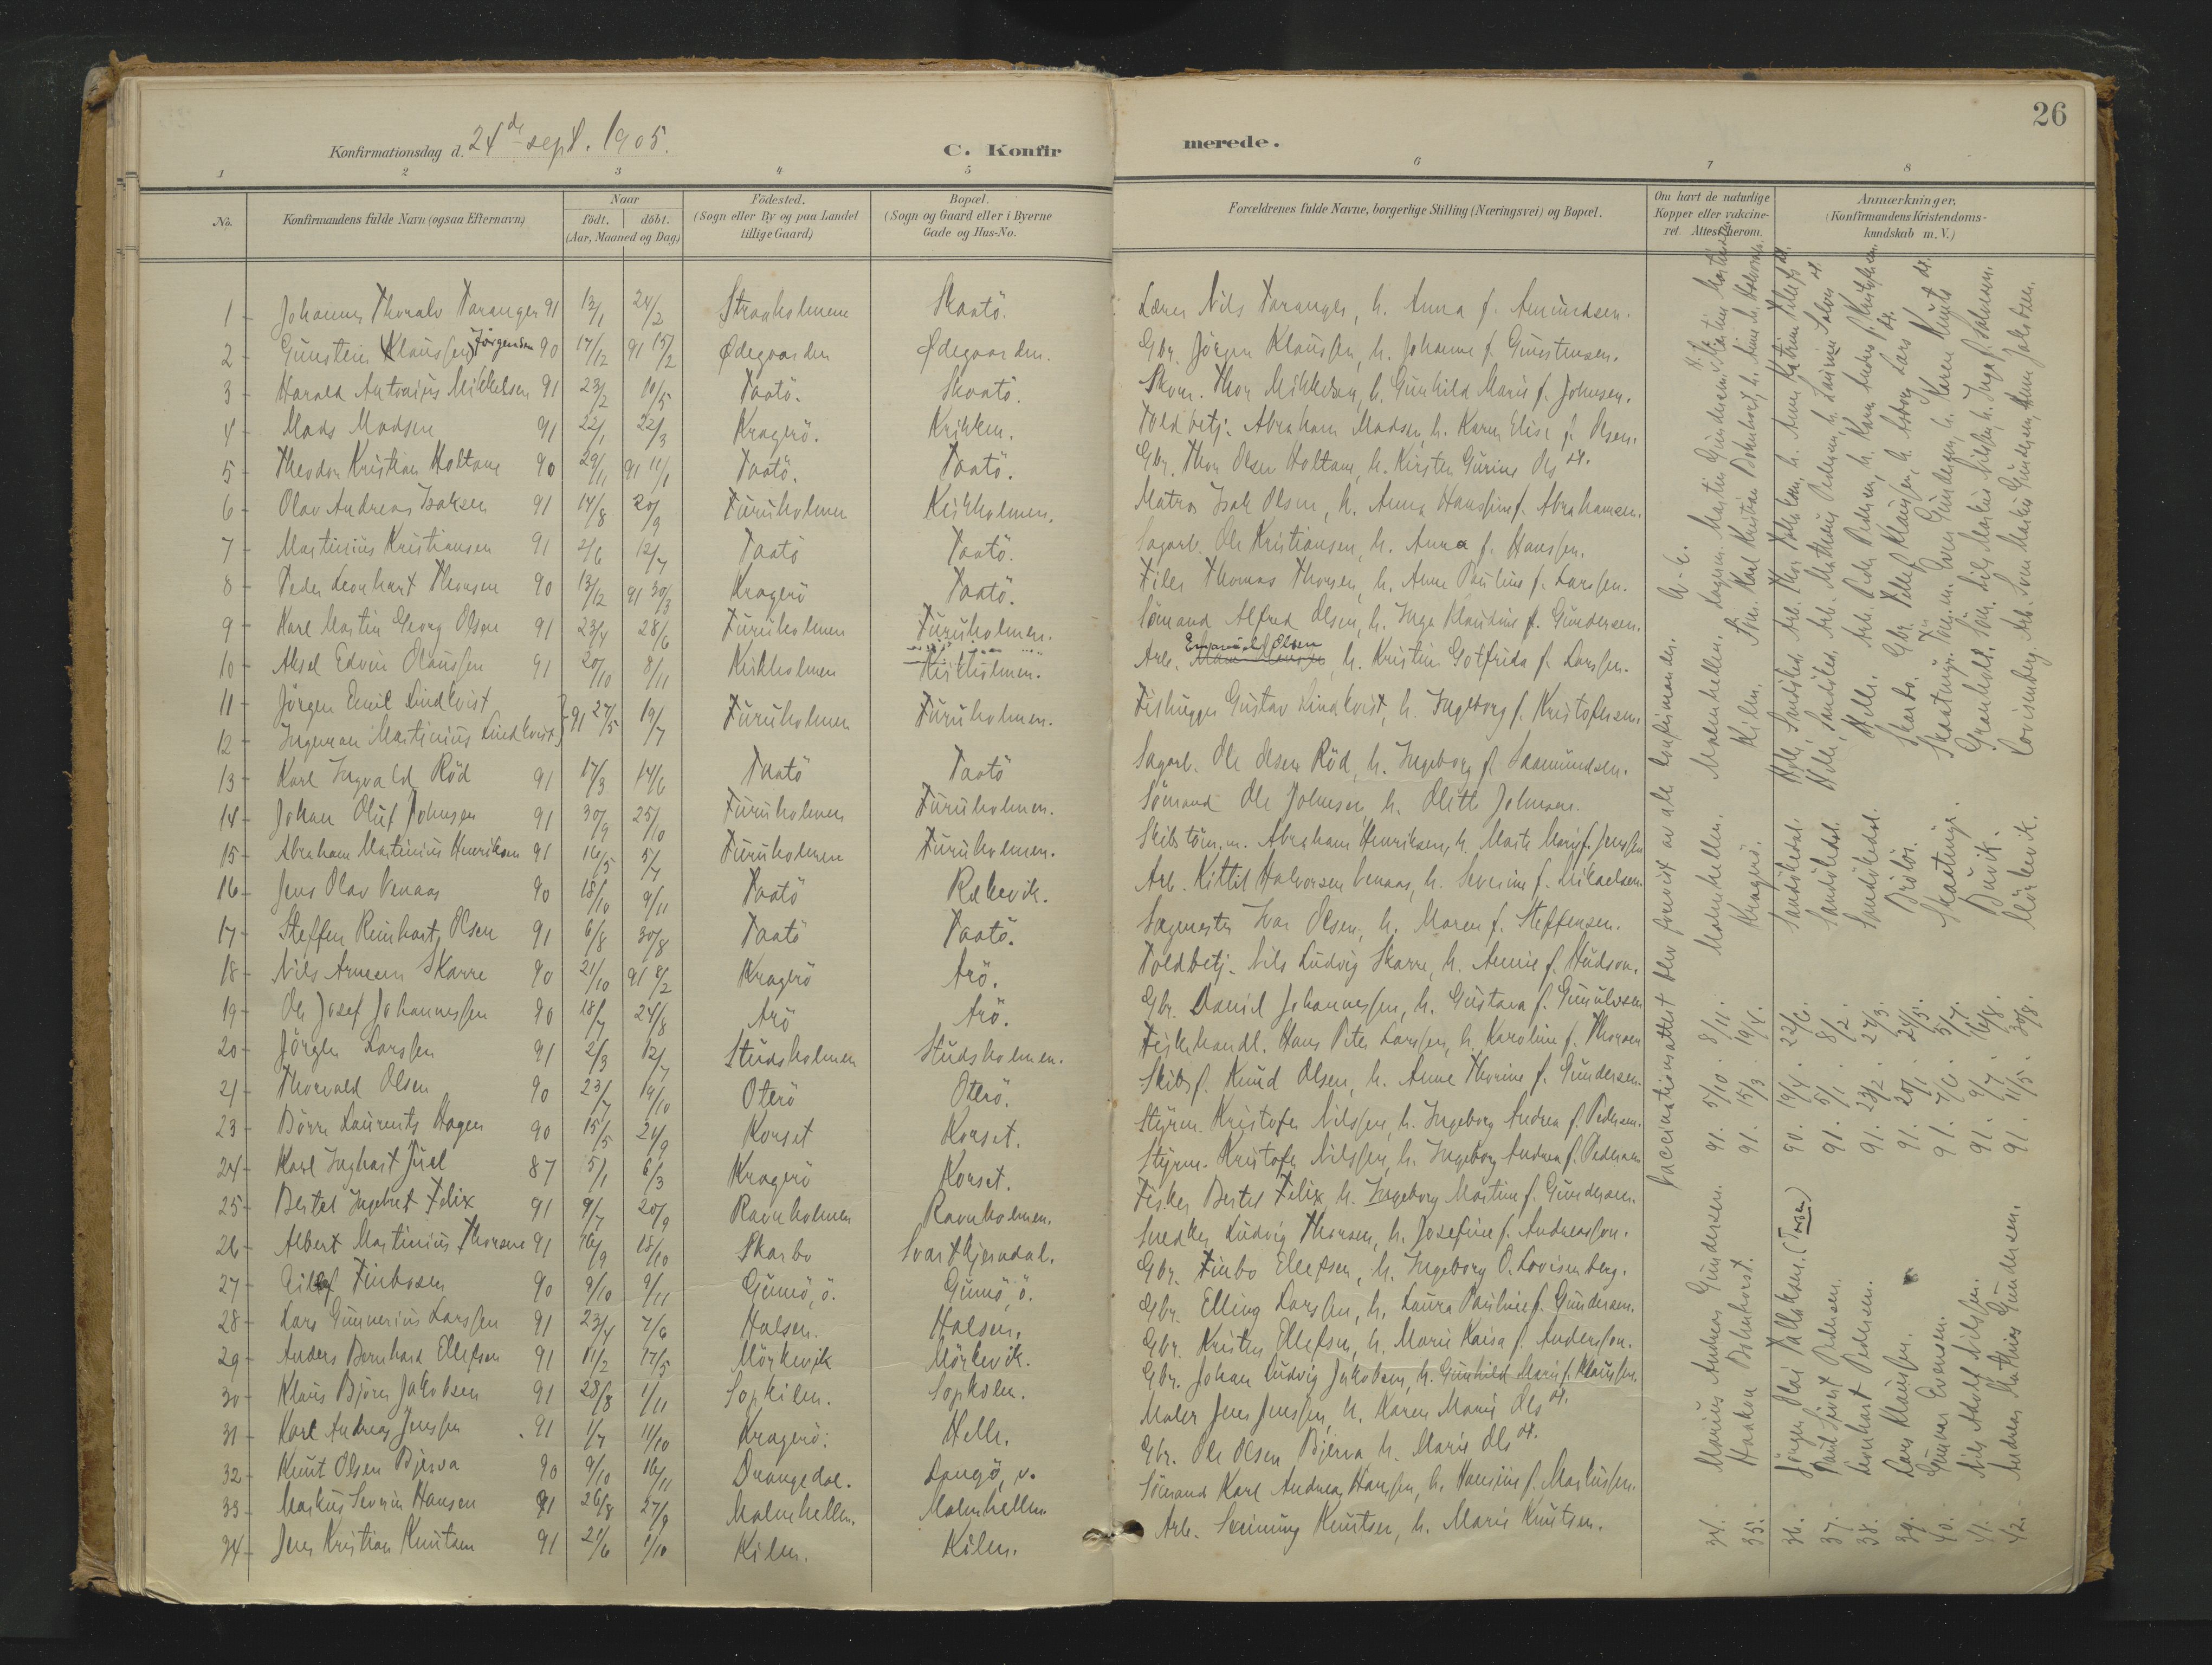 Konfirmationsdag d. 24de sept. 1905.
C. Konfirmerede.
26
1 2 3 4 5 6 7 8
No.
Konfirmandens fulde Navn (ogsaa Efternavn)
Naar
födt. döbt.
(Aar, Maaned og Dag)
Födested.
(Sogn eller By og paa Landet
tillige Gaard)
Bopæl.
(Sogn og Gaard eller i Byerne
Gade og Hus-No.
Forældrenes fulde Navne, borgerlige Stilling (Næringsvei) og Bopæl.
Om havt de naturlige
Kopper eller vakcine-
ret. Attest herom.
Anmærkninger.
(Konfirmandens Kristendoms-
kundskab m. V.)
1 Johannes Thoralv Taranger 91 13/1 24/2 Straaholmen Skaatö. Lærer Nils Taranger, h. Anna f. Amundsen.
2 Gunstein Klaussen Jörgensen 90 17/12 91 15/2 Ødegaarden Ødegaarden. Gbr. Jörgen Klaussen, h. Johanne f. Gunstensen.
3 Harald Antonius Mikkelsen 91 23/2 10/5 Taatö. Skaatö. Skom. Thor Mikkelsen, h. Gunhild Marie f. Johnsen.
4 Mads Madsen 91 22/1 22/3 Kragerö. Krikken. Toldbetj. Abraham Madsen, h. Karen Elise f. Olsen.
5 Theodor Kristian Holtane 90 29/11 91 11/1 Taatö. Taatö. Gbr. Thor Olsen Holtane, h. Kirsten Gurine Ols dt.
6 Olav Andreas Isaksen 91 14/8 20/9 Furuholmen Kirkholmen. Matros Isak Olsen, h. Anna Hanssine f. Abrahamsen.
7 Martinius Kristiansen 91 2/6 12/7 Taatö Taatö. Sagarb. Ole Kristiansen, h. Anna f. Hanssen.
8 Peder Leonhart Thorsen 90 13/12 91 30/3 Kragerö Taatö. Filer Thomas Thorsen, h. Anne Pauline f. Larssen.
9 Karl Martin Georg Olsen 91 23/4 28/6 Furuholmen Furuholmen. Sömand Alfred Olsen, h. Inga Klaudine f. Gundersen.
10 Aksel Edvin Olaussen 91 20/10 8/11 Kirkholmen Kirkholmen. Arb. Emanuel Olsen, h. Kristin Gotfrida f. Larssen.
11 Jörgen Emil Lindkvist
12 Ingeman Martinius Lindkvist 91 27/5 19/7 Furuholmen Furuholmen. Fishugger Gustav Lindkvist, h. Ingeborg f. Kristofersen.
13 Karl Ingvald Röd 91 17/3 14/6 Taatö Taatö Sagarb. Ole Olsen Röd, h. Ingeborg f. Saamundsen.
14 Johan Oluf Johnsen 91 30/9 25/10 Furuholmen Furuholmen. Sömand Ole Johnsen, h. Olette Johnsen.
15 Abraham Martinius Henriksen 91 16/5 5/7 Furuholmen Furuholmen. Skibstöm.m. Abraham Henriksen, h. Marte Marie f. Jenssen
16 Jens Olav Venaas 90 18/10 9/11 Taatö Rækevik. Arb. Kittil Halvorsen Venaas, h. Severine f. Mikaelsen.
17 Steffen Reinhart Olsen 91 6/8 30/8 Taatö Taatö. Sagmester Ivar Olsen, h. Maren f. Steffensen.
18 Nils Armeen Skarre 90 21/10 91 8/2 Kragerö Arö. Toldbetj. Nils Ludvig Skarre, h. Annie f. Hudson.
19 Ole Josef Johannessen 90 18/7 24/8 Arö Arö. Gbr. David Johannessen, h. Gustava f. Gunulvsen
20 Jörgen Larssen 91 2/3 12/7 Studsholmen Studsholmen. Fiskehandl. Hans Peter Larssen, h. Karoline f. Thorsen
21 Thorvald Olsen 90 23/7 19/10 Oterö Oterö. Skibsf. Knud Olsen, h. Anne Thorine f. Gundersen.
23 Börre Laurents Hagen 90 15/5 21/9 Korset Korset. Styrm. Kristofer Nilssen, h. Ingeborg Andrea f. Pedersen.
24 Karl Inghart Juel 87 5/1 6/3 Kragerö Korset. Styrm. Kristofer Nilssen, h. Ingeborg Andrea f. Pedersen
25 Bertel Ingebret Felix 91 9/7 20/9 Ravnholmen Ravnholmen. Fisker Bertel Felix, h. Ingeborg Martine f. Gundersen.
26 Albert Martinius Thorsen 91 16/9 18/10 Skarbo Svartkjendal. Snedker Ludvig Thorsen, h. Josefine f. Andreasson.
27 Finbosen 90 9/10 9/11 Gumö, ö. Gumö, ö. Gbr. Finbo Ellefsen, h. Ingeborg O. Lovisenberg.
28 Lars Gunnerius Larssen 91 23/4 7/6 Halsen. Halsen. Gbr. Elling Larssen, h. Laura Pauline f. Gundersen.
29 Anders Bernhard Ellefsen 91 11/2 17/5 Mörkevik Mörkevik. Gbr. Kristen Ellefsen, h. Marie Kaisa f. Andersson.
30 Klaus Björn Jakobsen 91 28/8 1/11 Sopkilen. Sopkilen. Gbr. Johan Ludvig Jakobsen, h. Gunhild Marie f. Klaussen.
31 Karl Andreas Jenssen 91 1/7 11/10 Kragerö. Helle. Maler Jens Jenssen, h. Karen Marie Ols dt.
32 Knut Olsen Bjerva 90 9/10 16/11 Drangedal. Langö, v. Gbr. Ole Olsen Bjerva h. Marie Ols dt.
33 Markus Severin Hansen 91 26/8 27/9 Malmhellen. Malmhellen. Sömand Karl Andreas Hanssen, h. Hansine f. Markussen.
34 Jens Kristian Knutsen 91 21/6 1/10 Kilen. Kilen. Arb. Sveinung Knutsen, h. Marie Knutsen.
Vaccinationsattest blev forevist av alle konfirmander.
34. Marius Andreas Gundersen. 91. 5/10. 8/11. Malmhellen. Malmhellen. Martin Gundersen,
35. Haakon Bolmhorst. 91. 15/3. 19/4. Kragerö. Kilen. Karl Kristian
36. Jörgen Olai Tallaksen. (Torsen) 90. 19/4. 22/6. Sandökedal. Helle, Sandöked. Arb. Thor Tallaksen, h. Anne Katrine
37. Paul Sivert Pedersen. 91. 5/1. 8/2. Sandökedal. Helle, Sandöked. Arb. Mathæus Pedersen, h. Laurine
38. Leonhart Pedersen. 91. 23/2. 27/3. Sandökedal. Helle. Arb. Peder Pedersen, h. Karen Andrea f.
39. Lars Klaussen. 91. 20/1. 24/5. Skarbo. Gbr. Tellef Klaussen, h. Aaborg Lars dt.
40. Gunnar Evensen. 91. 7/6. 5/7. Skaatunge. Skaatunge. Töm.m. Even Gundersen, h. Karen Knuts dt.
41. Nils Adolf Nilssen. 91. 9/7. 16/8. Buvik. Granholt. Söm. Nils Markus Nilssen, h. Inga f. Salvesen.
42. Andreas Mathias Gundersen. 91. 11/5. 30/8. Mörkevik. Lovisenberg. Arb. Gundersen, Jakobsen.